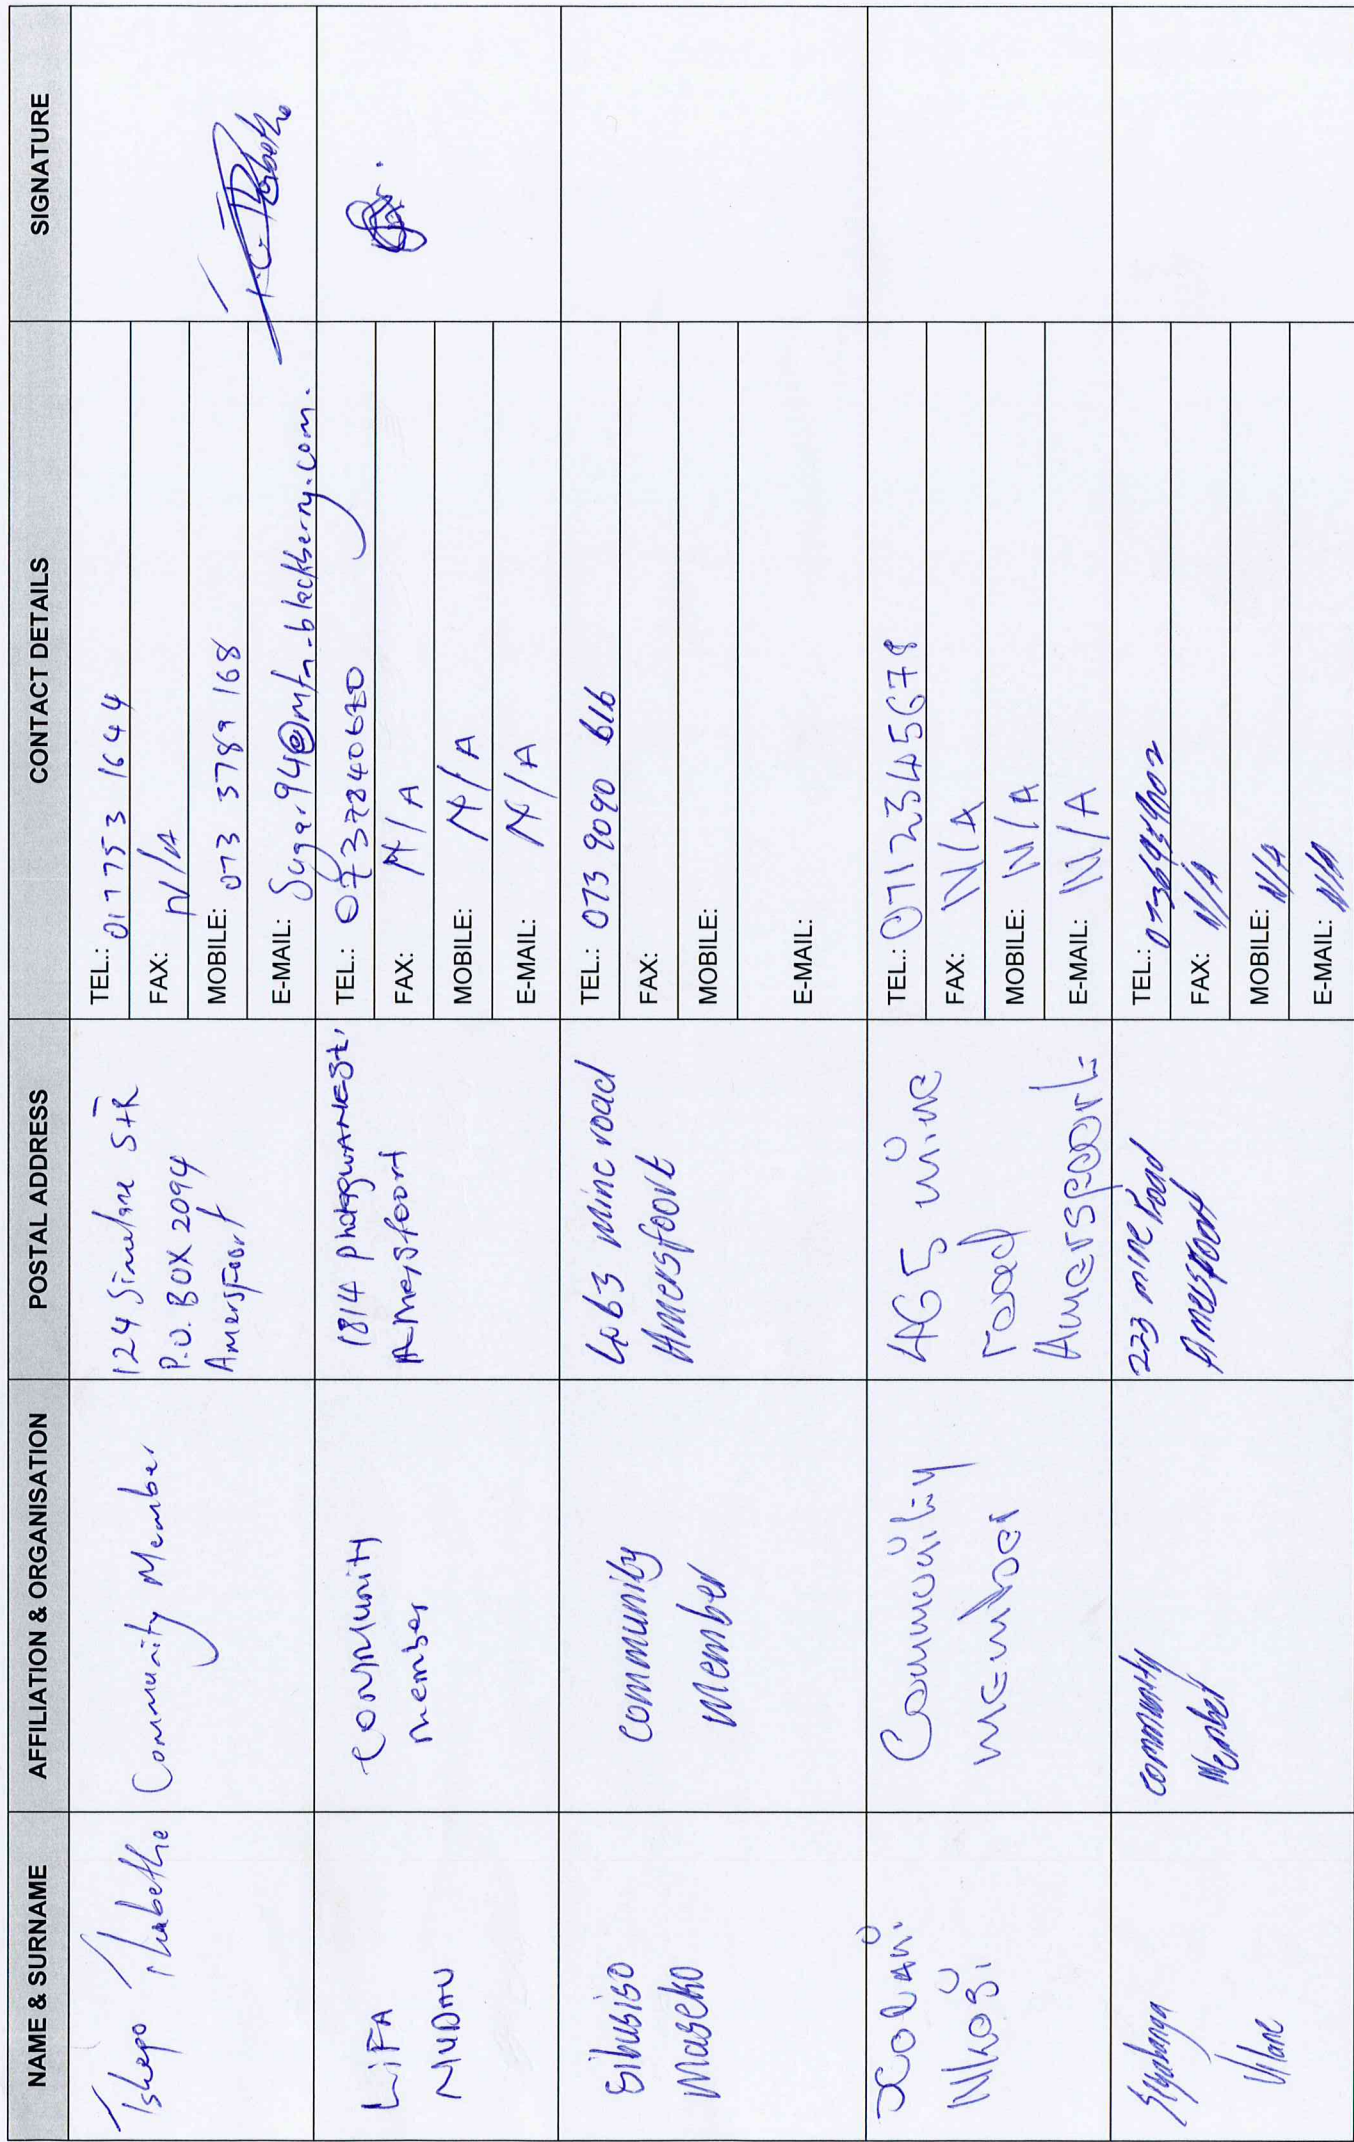 NAME & SURNAME
AFFILIATION & ORGANISATION
POSTAL ADDRESS
CONTACT DETAILS
SIGNATURE
Tshepo Thabethe
Community Member
124 Simelane STR
P.O. BOX 2094
Amersfoort
TEL.: 017 753 1644
FAX: N/A
MOBILE: 073 3789 168
E-MAIL: Sugar94@mtn.blackberry.com.
LiFA
Community
member
1814
Amersfoort
TEL.: 0737240620
FAX: N/A
MOBILE: N/A
E-MAIL: N/A
Sibusiso
Maseko
Community
Member
4063 mine road
Amersfoort
TEL.: 073 9090 616
FAX:
MOBILE:
E-MAIL:
Xolani
Nkosi
Community
member
465 mine
road
Amersfoort
TEL.: 0712345678
FAX: N/A
MOBILE: N/A
E-MAIL: N/A
Siyabonga
Vilane
community
Member
223 mine road
Amersfoort
TEL.:
FAX: N/A
MOBILE: N/A
E-MAIL: N/A